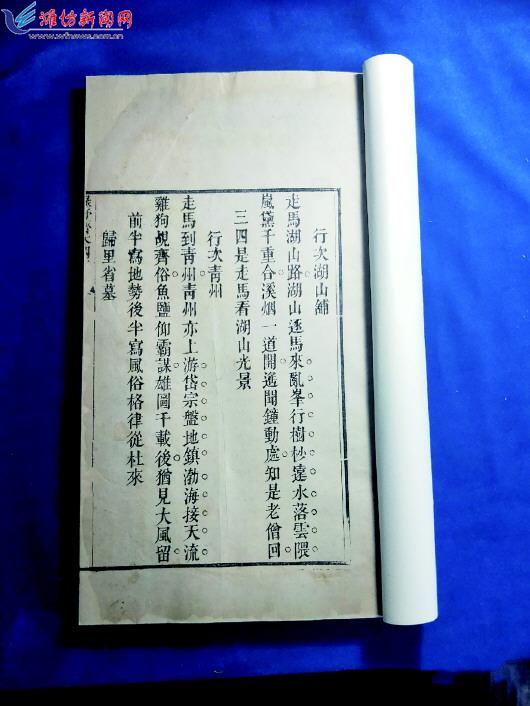 潍坊新闻网
www.wfnews.com.cn
行次湖山舖
走馬湖山路湖山逐馬來亂峯行樹杪遠水落雲隈
嵐黛千重合溪烟一道開遙聞鐘動處知是老僧回
三四是走馬看湖山光景
行次青州
走馬到青州青州亦上游岱宗盤地鎮渤海接天流
雞狗覘齊俗魚鹽仰霸謀雄圖千載後猶見大風留
前半寫地勢後半寫風俗格律從杜來
歸里省墓